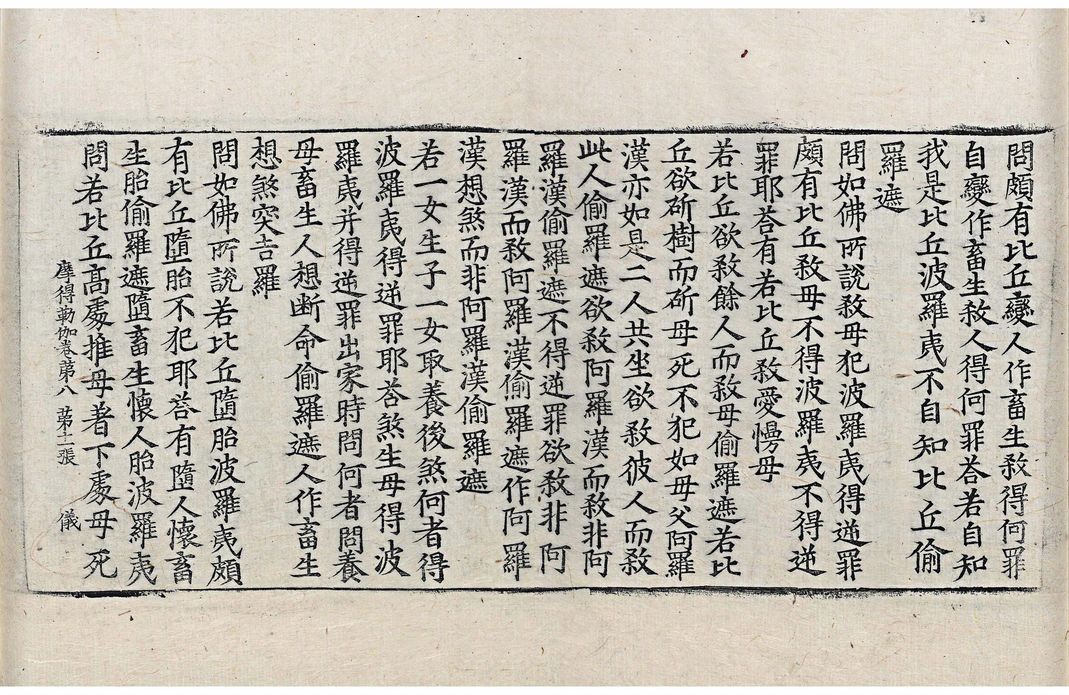 問頗有比丘變人作畜生敎得何罪
自變作畜生敎人得何罪荅若自知
我是比丘波羅夷不自知比丘偷
羅遮
問如佛所說敎母犯波羅夷得逆罪
頗有比丘敎母不得波羅夷不得逆
罪耶荅有若比丘敎愛慢母
若比丘欲敎餘人而敎母偷羅遮若比
丘欲斫樹而斫母死不犯如母父阿羅
漢亦如是二人共坐欲敎彼人而敎
此人偷羅遮欲敎阿羅漢而敎非阿
羅漢偷羅遮不得逆罪欲敎非阿
羅漢而敎阿羅漢偷羅遮作阿羅
漢想煞而非阿羅漢偷羅遮
若一女生子一女取養後煞何者得
波羅夷得逆罪耶荅煞生母得波
羅夷并得逆罪出家時問何者問養
母畜生人想断命偷羅遮人作畜生
想煞突吉羅
問如佛所說若比丘隨胎波羅夷頗
有比丘墮胎不犯耶荅有隨人懷畜
生胎偷羅遮隨畜生懷人胎波羅夷
問若比丘高處推母著下處母死
摩得勒伽卷第八 第十二張 儀